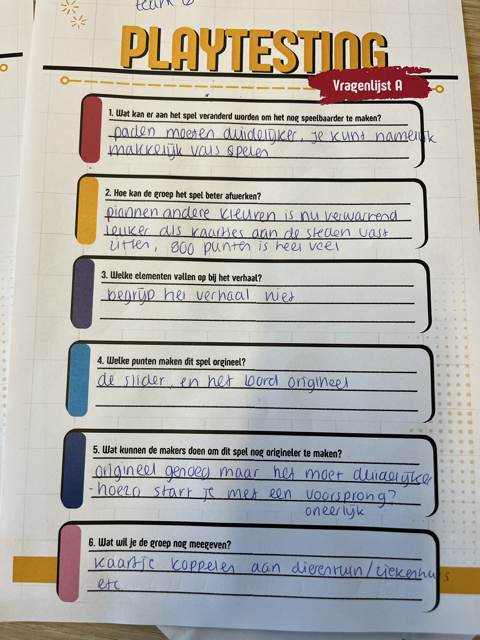 team 2
PLAYTESTING
Vragenlijst A
1. Wat kan er aan het spel veranderd worden om het nog speelbaarder te maken?
paden moeten duidelijker, je kunt namelijk
makkelijk vals spelen
2. Hoe kan de groep het spel beter afwerken?
piannen andere kleuren is nu verwarrend
leuker als kaartjes aan de steden vast
zitten, 800 punten is heel veel
3. Welke elementen vallen op bij het verhaal?
begrijp het verhaal niet
4. Welke punten maken dit spel orgineel?
de slider, en het bord origineel
5. Wat kunnen de makers doen om dit spel nog origineler te maken?
origineel genoeg maar het moet duidelijker
-hoezo start je met een voorsprong?
oneerlijk
6. Wat wil je de groep nog meegeven?
kaartje koppelen aan dierentuin/ziekenhuis
etc